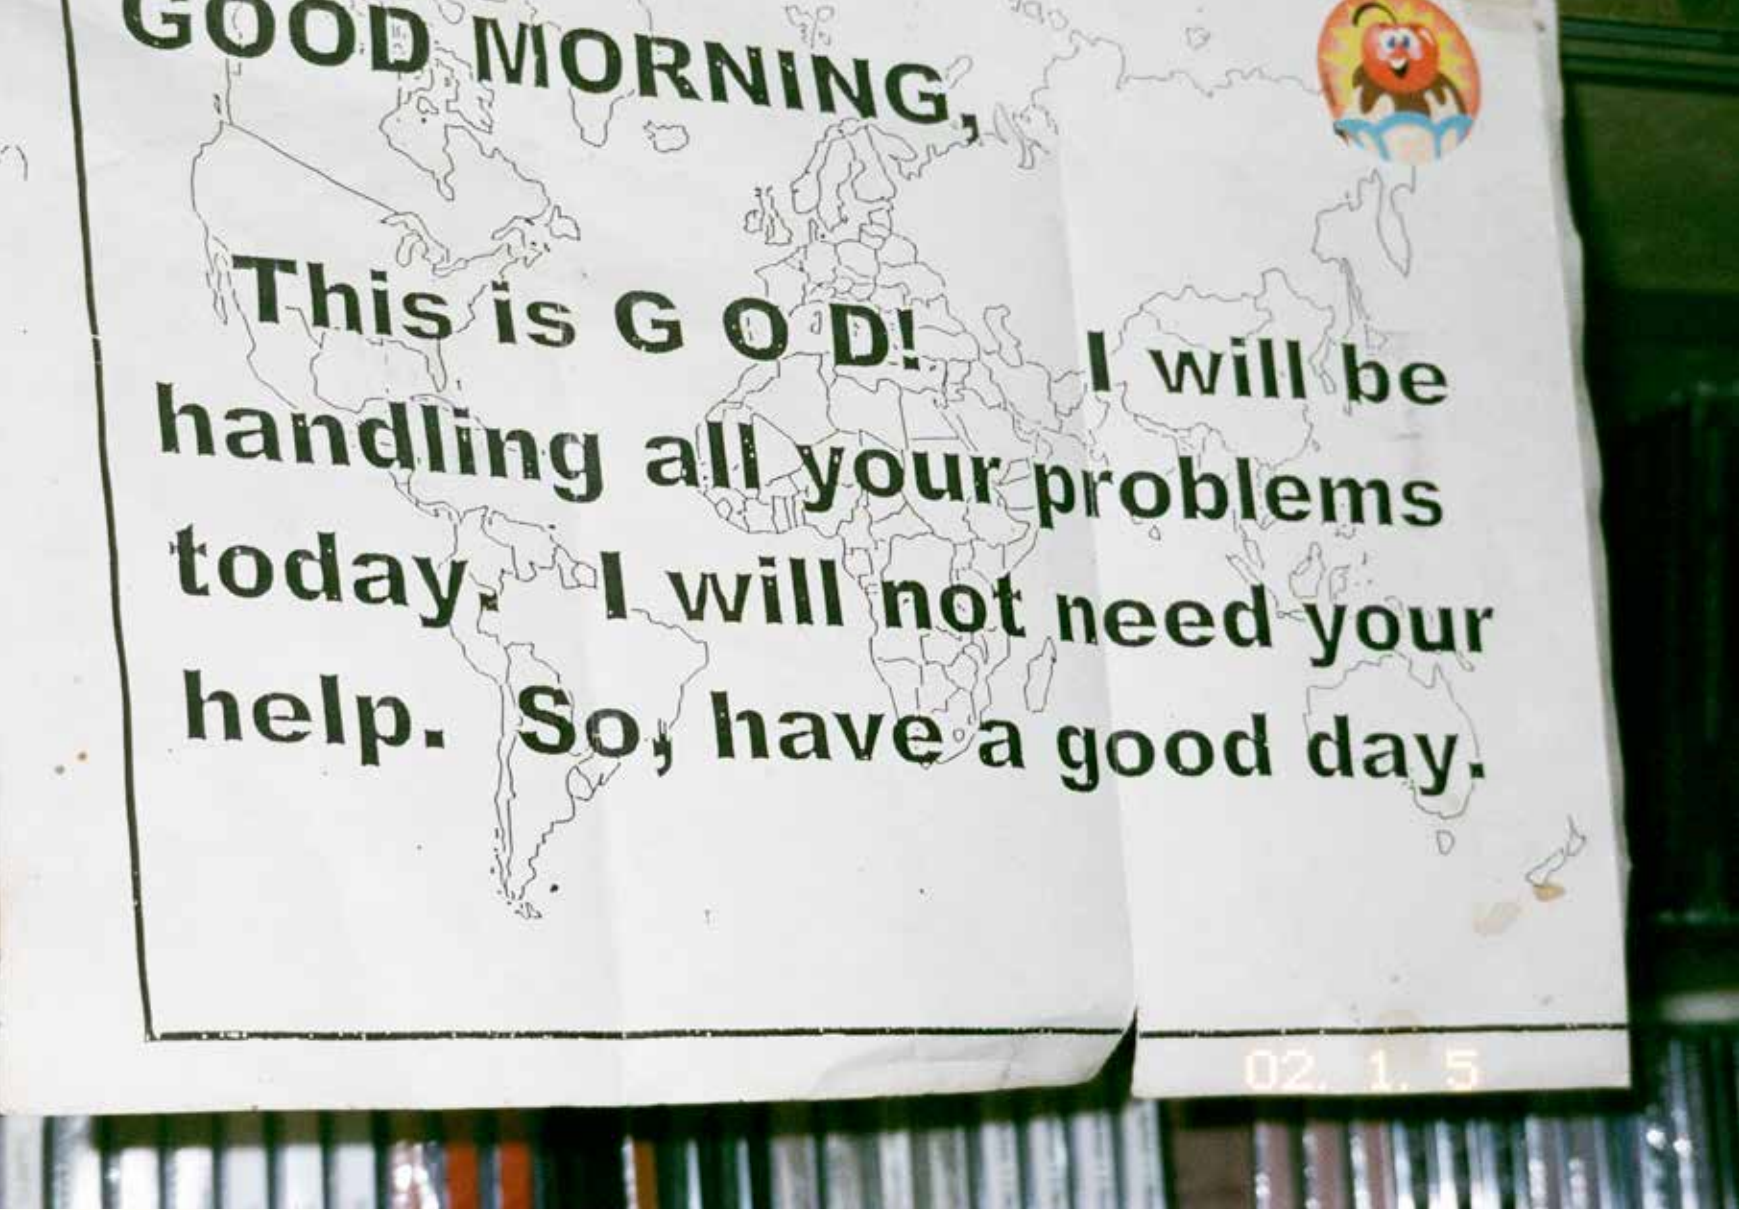 GOOD MORNING,
This is G O D! I will be
handling all your problems
today. I will not need your
help. So, have a good day.
02. 1. 5